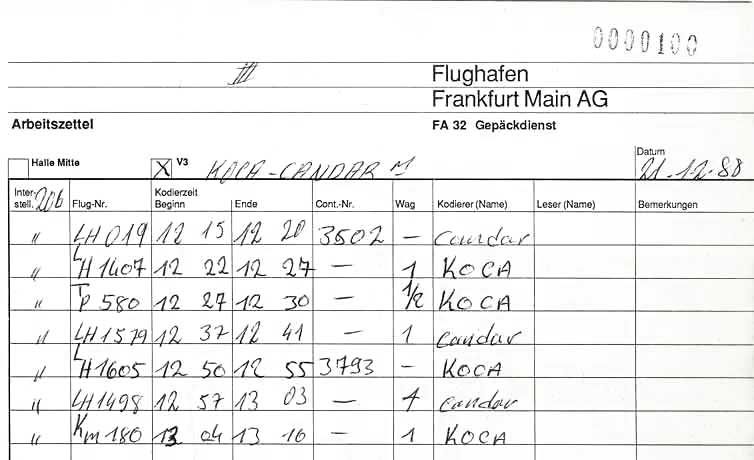 0000100
III Flughafen
Frankfurt Main AG
Arbeitszettel FA 32 Gepäckdienst
Halle Mitte X V3 KOCA-CANDAR M Datum 21.12.88
Inter-stell. 206 Flug-Nr. Kodierzeit Beginn Ende Cont.-Nr. Wag Kodierer (Name) Leser (Name) Bemerkungen
" LH 019 12 15 12 20 3502 – Candar
" LH 1407 12 22 12 27 – 1 KOCA
" TP 580 12 27 12 30 – 1/2 KOCA
" LH 1579 12 37 12 41 – 1 Candar
" LH 1605 12 50 12 55 3793 – KOCA
" LH 1498 12 57 13 03 – 1 Candar
" KM 180 13 04 13 16 – 1 KOCA